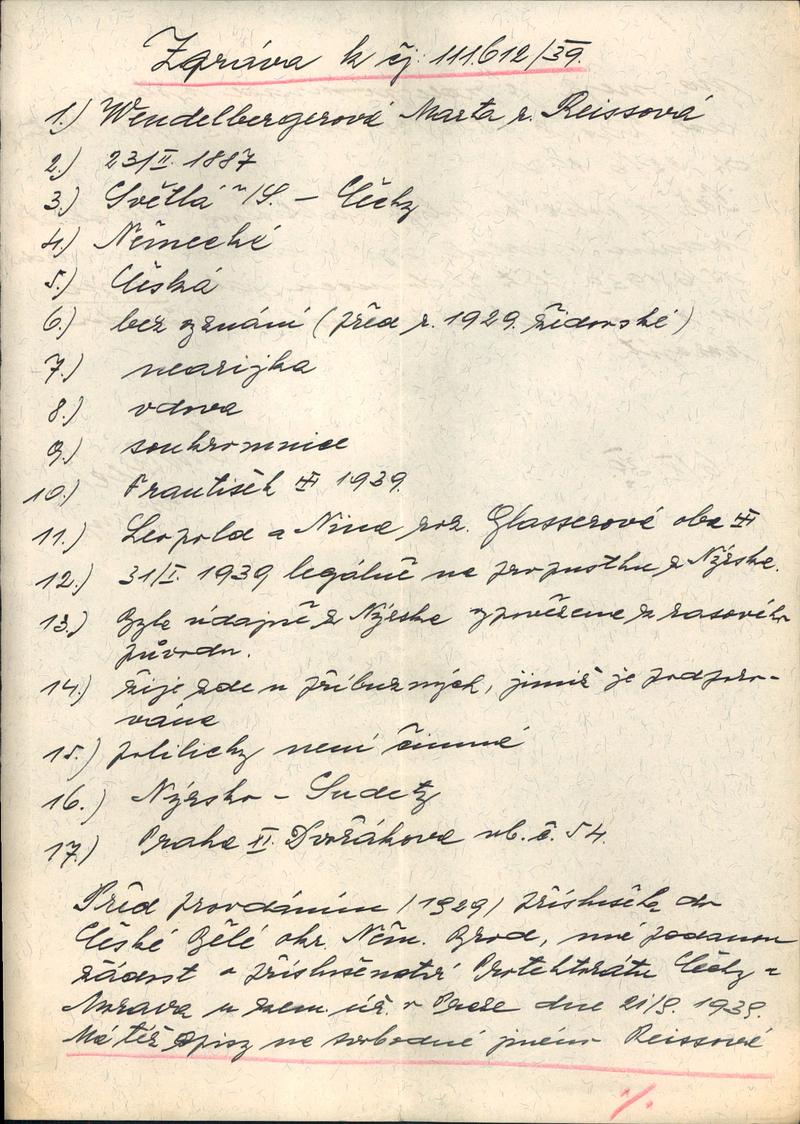 Zpráva k čj: 111.612/39.
1.) Wendelbergerová Marta r. Reissová
2.) 23/II. 1887
3.) Světlá n/S. – Čechy
4.) Německé
5.) Česká
6.) bez vyznání (před r. 1929. židovské)
7.) nearijka
8.) vdova
9.) soukromnice
10.) František 1939.
11.) Leopold a Nina roz. Glasserová oba
12.) 31/I. 1939 legálně na propustku z Nýrska.
13.) Byla údajně z Nýrska vypovězena z rasového
původu.
14.) žije zde u příbuzných, jimiž je podporo-
vána
15.) politicky není činná
16.) Nýrsko – Sudety
17.) Praha II. Dvořákova nb. č. 54.
Před provdáním (1929) příslušela do
České Bělé okr. Něm. Brod, má podanou
žádost o příslušenství Protektorátu Čechy a
Morava u zem. úř. v Praze dne 21/9. 1939.
Má též spisy na svobodné jméno Reissová